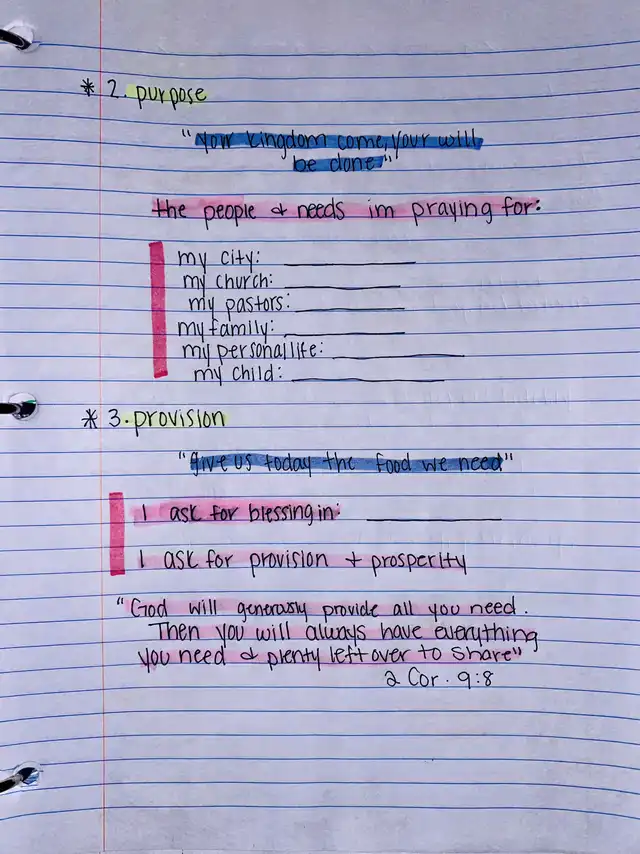 * 2. purpose
"Your kingdom come, your will
be done"
the people & needs im praying for:
my city:
my church:
my pastors:
my family:
my personal life:
my child:
* 3. provision
"give us today the food we need"
I ask for blessing in:
I ask for provision + prosperity
"God will generously provide all you need.
Then you will always have everything
you need & plenty left over to share"
2 Cor. 9:8